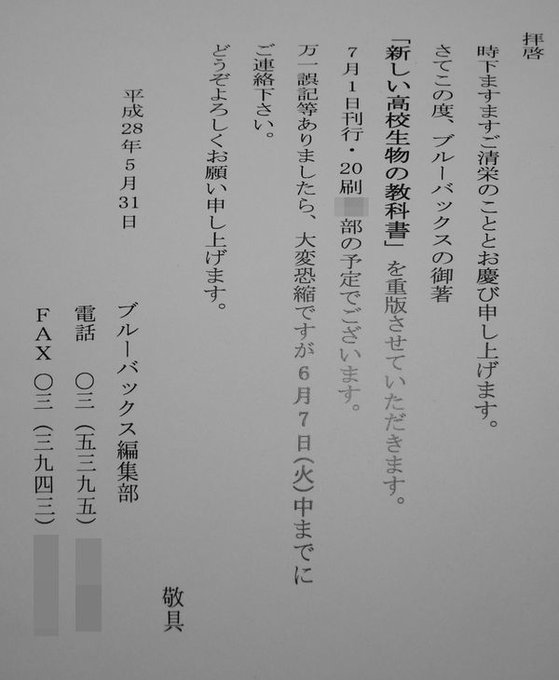 拝啓
時下ますますご清栄のこととお慶び申し上げます。
さてこの度、ブルーバックスの御著
「新しい高校生物の教科書」を重版させていただきます。
7月1日刊行・20刷 部の予定でございます。
万一誤記等ありましたら、大変恐縮ですが6月7日(火)中までに
ご連絡下さい。
どうぞよろしくお願い申し上げます。
敬具
平成28年5月31日
ブルーバックス編集部
電話 〇三(五三九五)
FAX 〇三(三九四三)